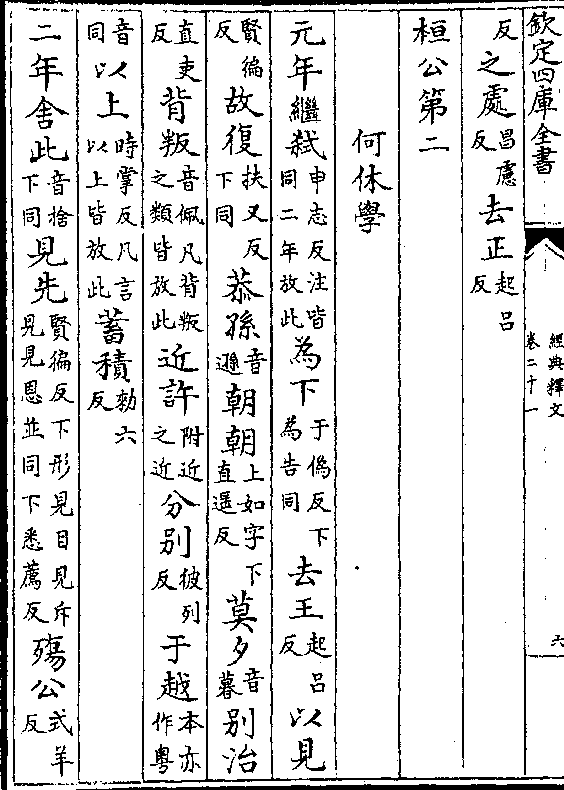 欽定四庫全書
經典釋文
卷二十一
六
反之處昌慮反去正起呂反
桓公第二
何休學
元年繼弑申志反注皆同二年放此為下于偽反下為告同去王起呂反以見
賢徧反故復扶又反下同恭孫音遜朝朝上如字下直遥反莫夕音暮别治
直吏反背叛音佩凡背叛之類皆放此近許附近之近分别彼列反于越本亦作粤
音同以上時掌反凡言以上皆放此蓄積勑六反
二年舍此音捨下同見先賢徧反下形見目見斥見見恩並同下悉薦反殤公式羊反